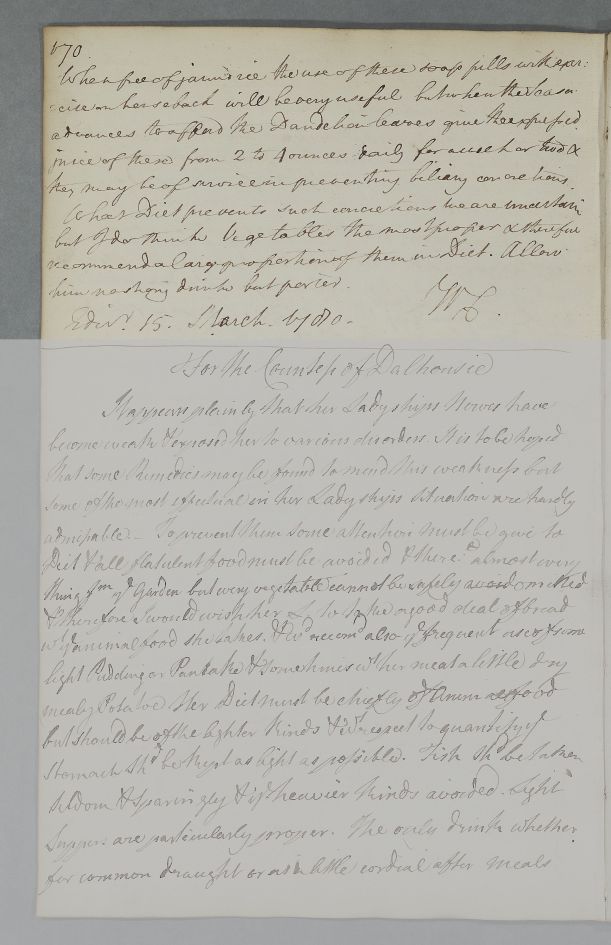 170.
When free of jaundice the use of these soap pills with exer:
cise on horseback will be very useful but when the season
advances to afford the Dandelion leaves give the expressed
juice of these from 2 to 4 ounces daily for a week or two &
they may be of service in preventing biliary concretions.
What Diet prevents such concretions we are uncertain
but I do think Vegetables the most proper & therefore
recommend a large proportion of them in Diet. Allow
him no strong drink but porter.
Edinr. 15. March. 1780. WC.
For the Countess of Dalhousie
It appears plainly that her Ladyships Nerves have
become weak & exposed her to various disorders. It is to be hoped
that some Remedies may be found to mend this weakness but
some of the most effectual in her Ladyships situation are hardly
admissable - To prevent them some attention must be give to
Diet & all flatulent food must be avoided & there: almost every
thing fm ye Garden but every vegetable cannot be safely omitted
& therefore I would wish her L. to take a good deal of bread
wt ye animal food she takes. & I'd recomd also ye frequent use of some
light Pudding or Pancake & sometimes wt her meat a little dry
mealy Potatoe Her Diet must be chiefly of Animal food
but should be of the lighter kinds & in respect to quantity ye
stomach shd be kept as light as possible. Fish shd be taken
seldom & sparingly & ye heavier kinds avoided. Light
Suppers are particularly proper. The only drink whether
for common draught or as a little cordial after meals